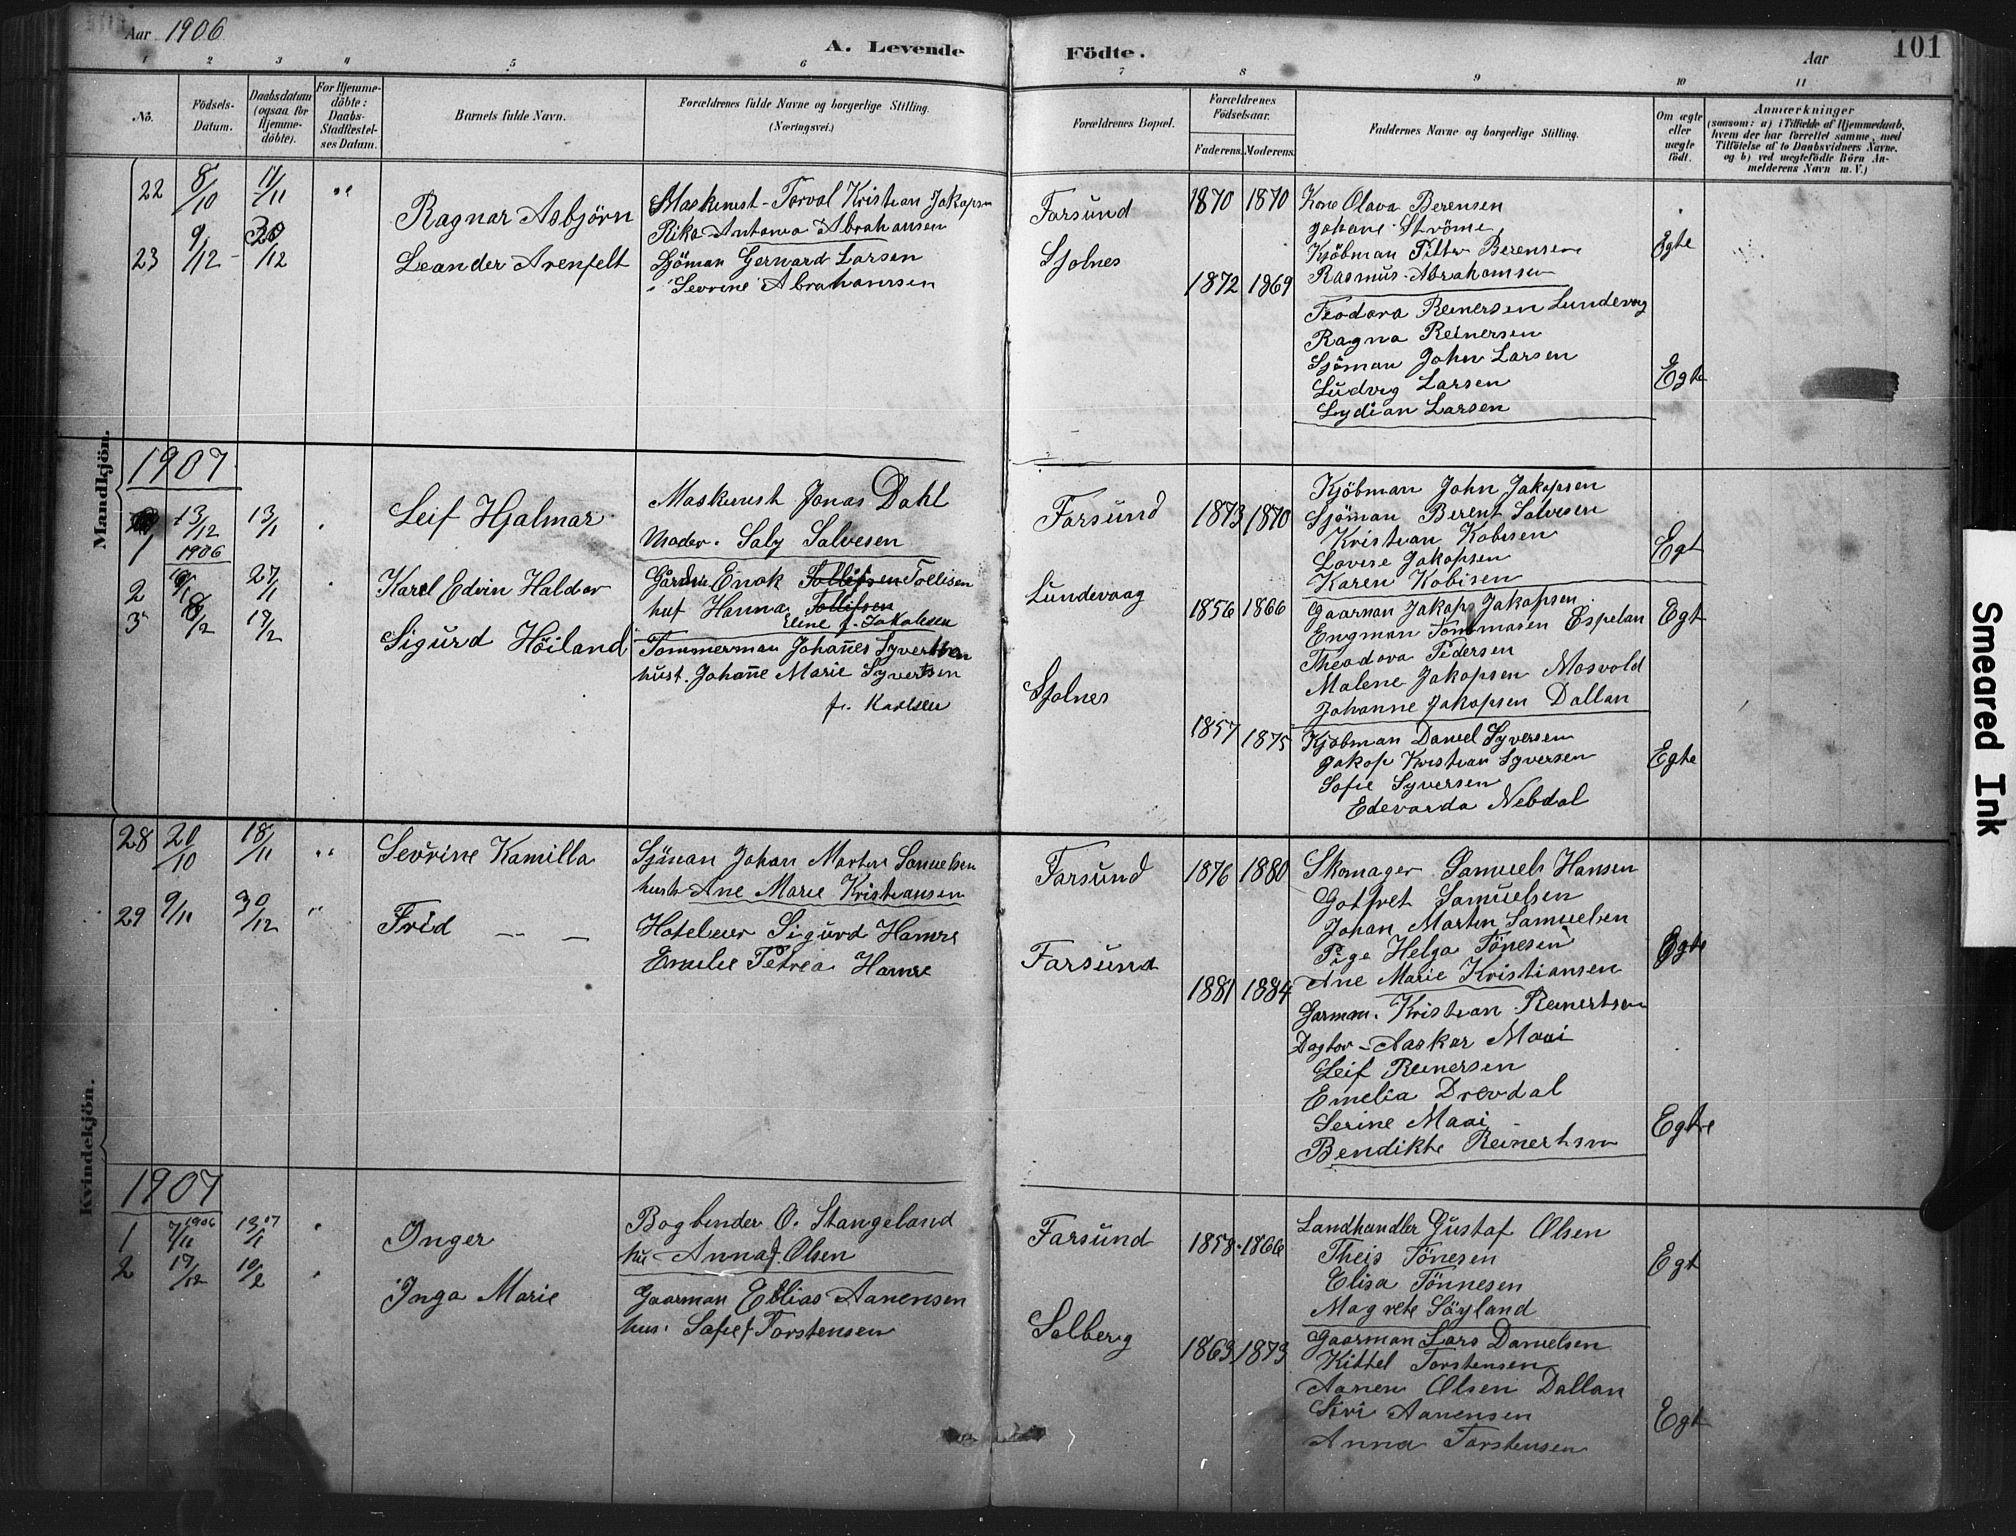 Aar 1906
A. Levende Födte.
Aar
101
1 2 3 4 5 6 7 8 9 10 11
No.
Födsels-Datum.
Daabsdatum (ogsaa for Hjemme-döbte).
For Hjemme-döbte: Daabs-Stadfæstel-ses Datum.
Barnets fulde Navn.
Forældrenes fulde Navne og borgerlige Stilling.
(Næringsvei.)
Forældrenes Bopæl.
Forældrenes Födselsaar.
Faderens. Moderens.
Faddernes Navne og borgerlige Stilling.
Om ægte eller uægte födt.
Anmærkninger
(saasom: a) i Tilfælde af Hjemmedaab, hvem der har forrettet samme, med Tilföielse af to Daabsvidners Navne. og b) ved uægtefödte Börn An-melderens Navn m. V.)
Mandkjön.
22 8/10 11/11 " Ragnar Asbjörn
Maskinist - Torval Kristian Jakopsen
Rika Antonia Abrahansen
Farsund 1870 1870
Kone Olava Berensen
Johane Ströme
Kjöbman Pitter Berensen
Rasmus Abrahamsen
Egte
23 9/12 30/12 Leander Arenfelt
Sjöman Gernard Larsen
" Sevrine Abrahamsen
Sjolnes 1872 1869
Teodora Reinersen Lundevog
Ragna Reinersen
Sjöman John Larsen
Ludvig Larsen
Lydian Larsen
Egte
1907
1 13/12 1906 13/1 Leif Hjalmar
Maskinist Jonas Dahl
Moder. Saly Salvesen
Farsund 1873 1870
Kjöbman John Jakopsen
Sjöman Berent Salvesen
Kristian Kobisen
Lovise Jakopsen
Karen Kobisen
Egt
2 27/1 Karel Edvin Haldor
Enok Tollifsen Tollisen
huf Hanna Tollifsen
Eline f. Jakobsen
Lundevaag 1856 1866
Gaarman Jakop Jakopsen
Engman Tommasen Espelan
Theodora Pedersen
Malene Jakopsen Mosvold
Johanne Jakopsen Dallan
Egt
3 8/2 17/2 Sigurd Höiland
Tommerman Johañes Syvertsen
hust. Johañe Marie Syvertsen
f. Karlsen
Sjolnes 1857 1875
Kjöbman Daniel Syversen
Jakop Kristian Syversen
Sofie Syversen
Edevarda Nebdal
Egte
Kvindekjön.
28 20/10 18/11 " Sevrine Kamilla
Sjöman Johan Martin Samuelsen
hustr Ane Marie Kristiansen
Farsund 1876 1880
Skomager Samuels Hansen
Gotfret Samuelsen
Johan Martin Samuelsen
Pige Helga Tönesen
Ane Marie Kristiansen
Egte
29 9/11 30/12 " Frid — —
Hoteleier Sigurd Hamre
Emelie Petrea Hamre
Farsund 1881 1884
Garmm. Kristian Reinertsen
Dogtor - Aaskar Maai
Leif Reinersen
Emelia Drevdal
Serine Maai
Bendikte Reinertsen
Egte
1907
1 7/11 1906 13/1 07 Inger
Bogbinder O. Stangeland
hu Anna f. Olsen
Farsund 1858 1866
Landhandler Gustaf Olsen
Theis Tönesen
Elisa Tönnesen
Magrete Söyland
Egt
2 17/12 10/2 Inga Marie
Gaarman Ellias Aanensen
hus. Sofie f. Torstensen
Solberg 1863 1873
Gaarman Lars Danielsen
Kittel Torstensen
Aanen Olsen Dallan
Siri Aanensen
Anna Torstensen
Egt
Smeared Ink